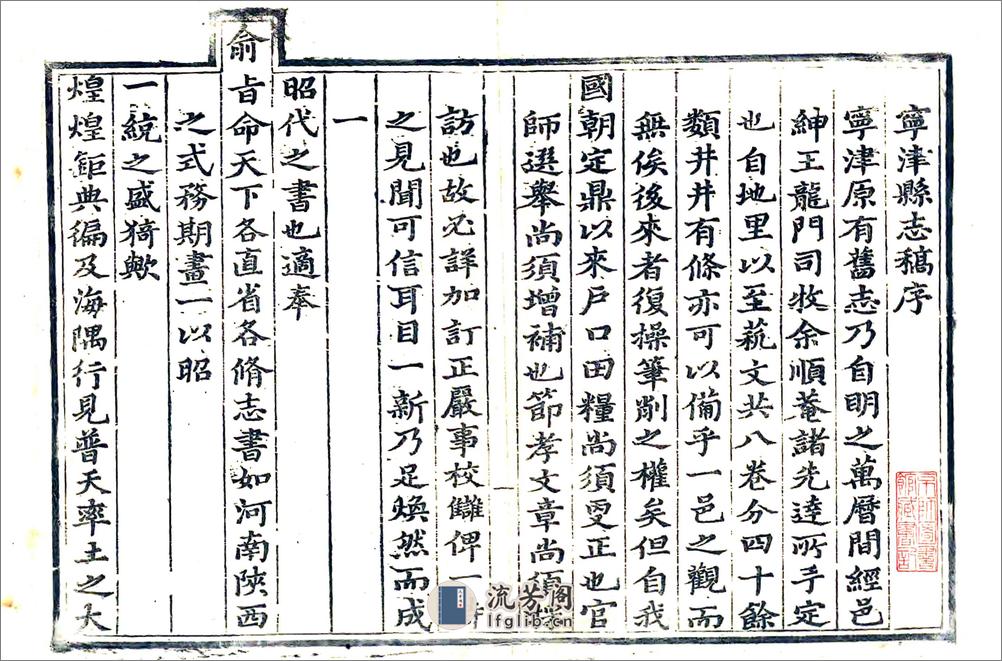 寧津縣志稿序
寧津原有舊志乃自明之萬曆間經邑
紳王龍門司牧余順菴諸先達所手定
也自地里以至藝文共八卷分四十餘
類井井有條亦可以備乎一邑之觀而
無俟後來者復操筆削之權矣但自我
國朝定鼎以來戶口田糧尚須更正也官
師選舉尚須增補也節孝文章尚須
訪也故必詳加訂正嚴事校讎俾一
之見聞可信耳目一新乃足煥然而成
一
昭代之書也適奉
俞旨命天下各直省各脩志書如河南陝西
之式務期畫一以昭
一統之盛猗歟
煌煌鉅典徧及海隅行見普天率土之大
流芳阁
lfglib.cn